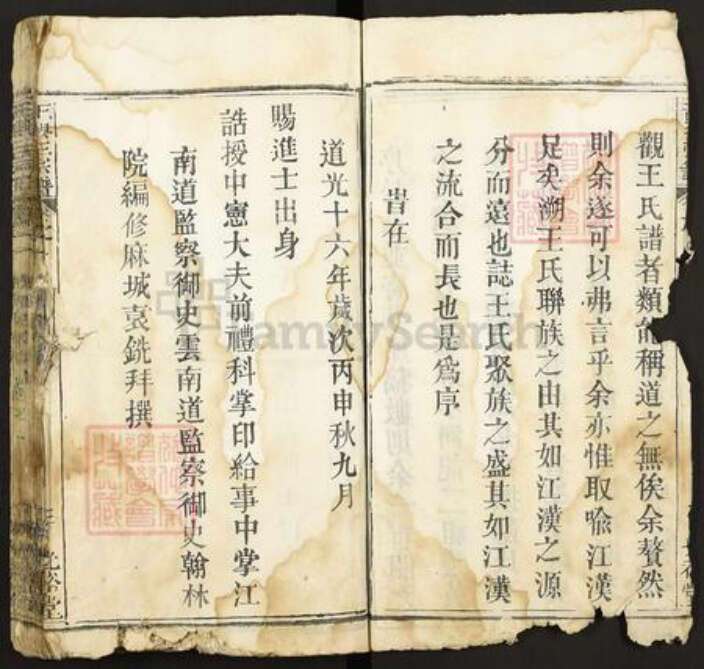 觀王氏譜者類能稱道之無俟余贅然
則余遂可以弗言乎余亦惟取喻江漢
足矣溯王氏聯族之由其如江漢之源
分而遠也誌王氏聚族之盛其如江漢
之流合而長也是爲序
旹在
道光十六年歲次丙申秋九月
賜進士出身
誥授中憲大夫前禮科掌印給事中掌江
南道監察御史雲南道監察御史翰林
院編修麻城袁銑拜撰
FamilySearch